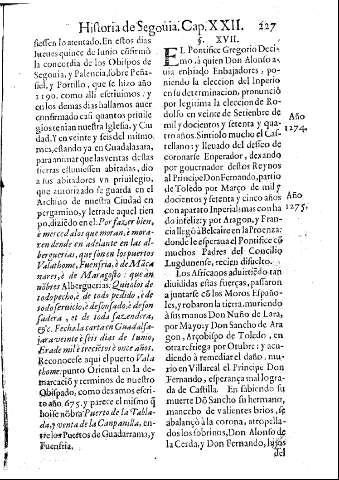 Historia de Segouia. Cap. XXII. 227
siessen lo atentado. En estos dias
Iueues quince de Iunio cõfirmó
la concordia de los Obispos de
Segouia, y Palencia, sobre Peña-
fiel, y Portillo, que se hizo año
1190. como alli escriuimos: y
en los demas dias hallamos auer
confirmado casi quantos priuile
gios tenian nuestra Iglesia, y Ciu
dad. Y en veinte y seis del mismo
mes, estando ya en Guadalaxara,
para animar que las ventas destas
sierras estuuiessen abitadas, dio
a sus abitadores vn priuilegio,
que autorizado se guarda en el
Archiuo de nuestra Ciudad en
pergamino, y letra de aquel tien
po, diziẽdo en el. Por fazer bien,
e merced a los que moran, è mora-
ren dende en adelante en las al-
berguerias, que son en los puertos
Valathome, Fuenfria, è de Maça
nares, è de Maragosto : que an
nõbres Alberguerias. Quitolos de
todo pecho, è de todo pedido, è de
todo seruicio, è de fonsado, è de fon
sadera, et de toda fazendera,
&c. Fecha la carta en Guadalfa-
jara veinte è seis dias de Iunio,
Era de mil è trecietos è once años.
Reconocese aqui el puerto Vala
thome, punto Oriental en la de-
marcaciõ y terminos de nuestro
Obispado, como desamos escri-
to año 675. y parece el mismo q̃
hoi se nõbra Puerto de la Tabla-
da, y venta de la Canpanilla, en-
tre los Puertos de Guadarrama, y
Fuenfria.
§. XVII.
EL Pontifice Gregorio Deci-
mo, à quien Don Alonso a-
uia enbiado Enbajadores, po-
niendo la eleccion del Inperio
en su determinacion, pronunciò
por legitima la eleccion de Ro-
dolfo en veinte de Setienbre de
mil y docientos y setenta y qua-
tro años. Sintiolo mucho el Cas-
tellano: y lleuado del desseo de
coronarse Enperador, dexando
por gouernador destos Reynos
al Principe Don Fernando, partiò
de Toledo por Março de mil y
docientos y setenta y cinco años
con aparato Inperial: mas con ha
do infeliz: y por Aragon, y Fran-
cia llegò à Belcaire en la Proenza:
donde le esperaua el Pontifice cõ
muchos Padres del Concilio
Lugdunense, recien disuelto.
Los Africanos aduirtiẽdo tan
diuididas estas fuerças, passaron
a juntarse cõ los Moros Españo-
les, y robaron la tierra, muriendo
à sus manos Don Nuño de Lara,
por Mayo: y Don Sancho de Ara
gon, Arçobispo de Toledo, en
otra refriega por Otubre: y acu-
diendo à remediar el daño, mu-
rio en Villareal el Principe Don
Fernando, esperança mal logra-
da de Castilla. En sabiendo su
muerte Dõ Sancho su hermano,
mancebo de valientes brios, se
abalançò à la corona, atropella-
dos los sobrinos, Don Alonso de
la Cerda, y Don Fernando, hijos
del
Año
1274.
Año
1275.